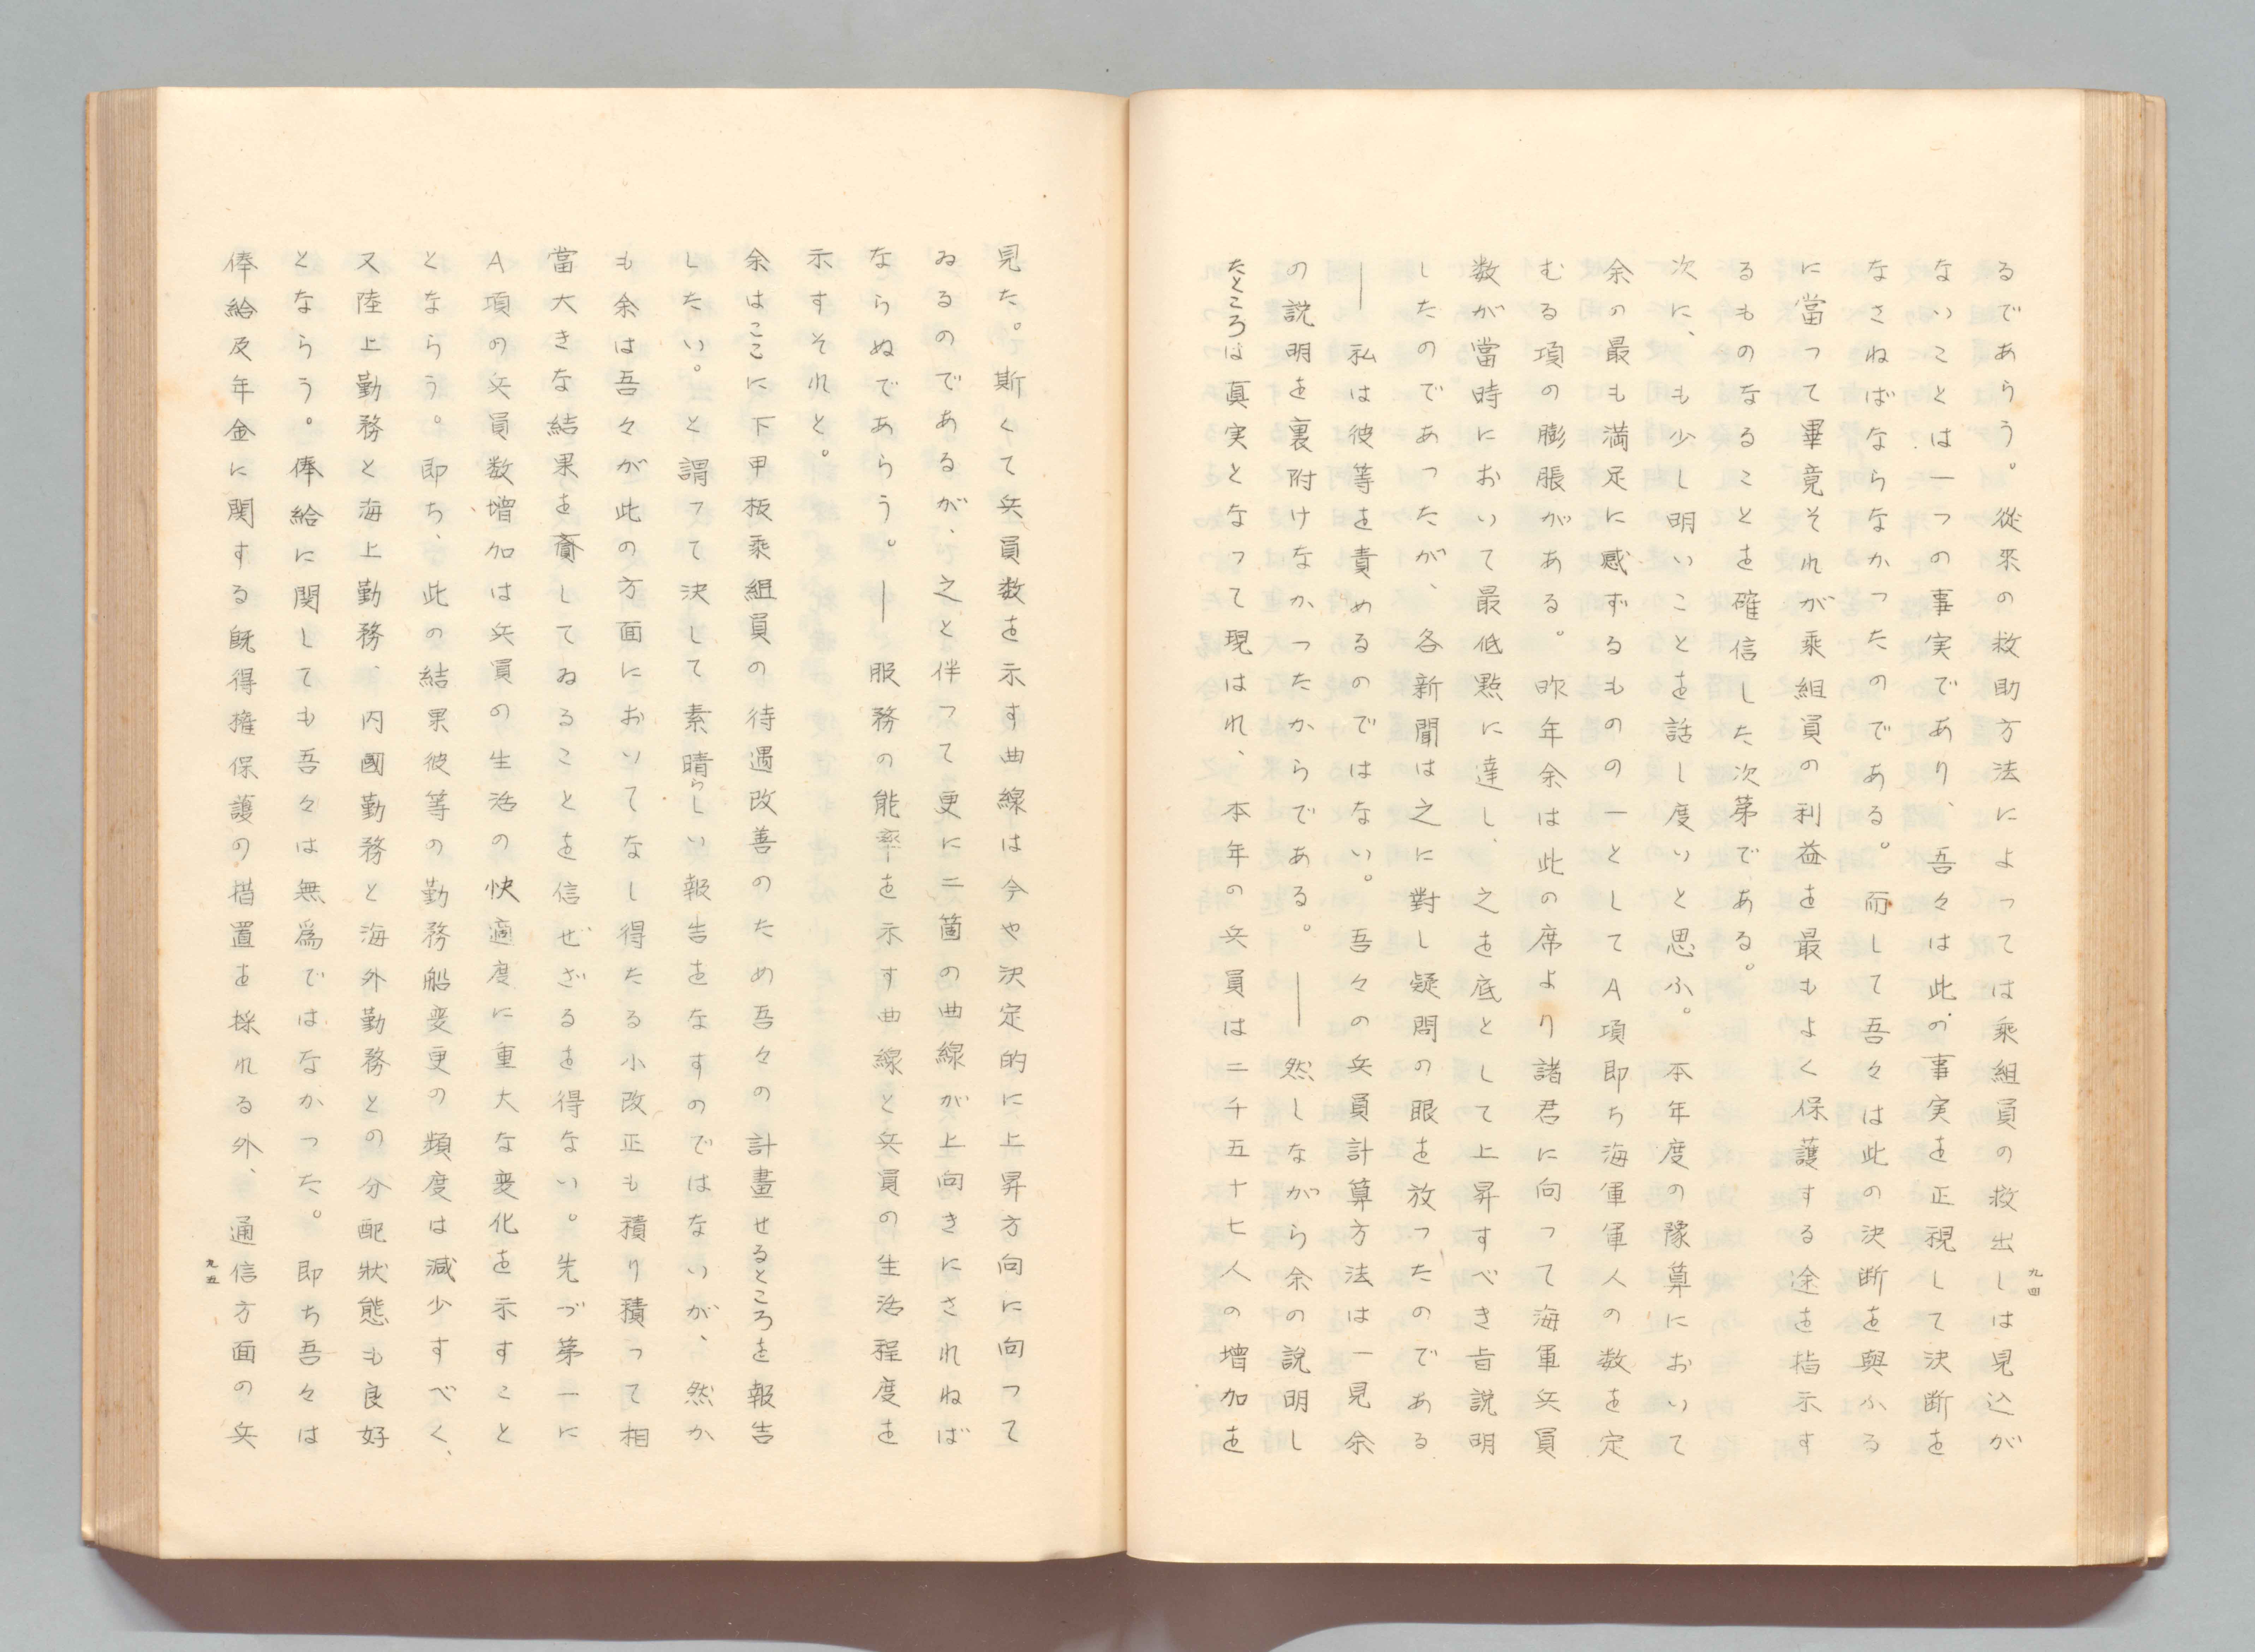 るであらう。從来の救助方法によっては乘組員の救出しは見込が
ないことは一つの事実であり、吾々は此の事実を正視して決断を
なさねばならなかったのである。而して吾々は此の決断を與ふる
に當って畢竟それが乘組員の利益を最もよく保護する途を指示す
るものなることを確信した次第である。
次に、も少し明いことを話し度いと思ふ。本年度の豫算において
余の最も満足に感ずるものの一としてA項即ち海軍軍人の数を定
むる項の膨脹がある。昨年余は此の席より諸君に向って海軍兵員
数が當時において最低點に達し、之を底として上昇すべき旨説明
したのであったが、各新聞は之に對し疑問の眼を放ったのである
― 私は彼等を責めるのではない。吾々の兵員計算方法は一見余
の説明を裏附けなかったからである。― 然しながら余の説明し
たところは眞実となって現はれ、本年の兵員は二千五十七人の増加を
九四
見た。斯くて兵員数を示す曲線は今や決定的に上昇方向に向って
ゐるのであるが、之と伴って更に二箇の曲線が上向きにされねば
ならぬであらう。― 服務の能率を示す曲線と兵員の生活程度を
示すそれと。
余はここに下甲板乘組員の待遇改善のため吾々の計畫せるところを報告
したい。と謂って決して素晴らしい報告をなすのではないが、然か
も余は吾々が此の方面においてなし得たる小改正も積り積って相
當大きな結果を齎してゐることを信ぜざるを得ない。先づ第一に
A項の兵員数増加は兵員の生活の快適度に重大な変化を示すこと
とならう。即ち、此の結果彼等の勤務船変更の頻度は減少すべく、
又陸上勤務と海上勤務、内國勤務と海外勤務との分配狀態も良好
とならう。俸給に関しても吾々は無爲ではなかった。即ち吾々は
俸給及年金に関する既得擁保護の措置を採れる外、通信方面の兵
九五